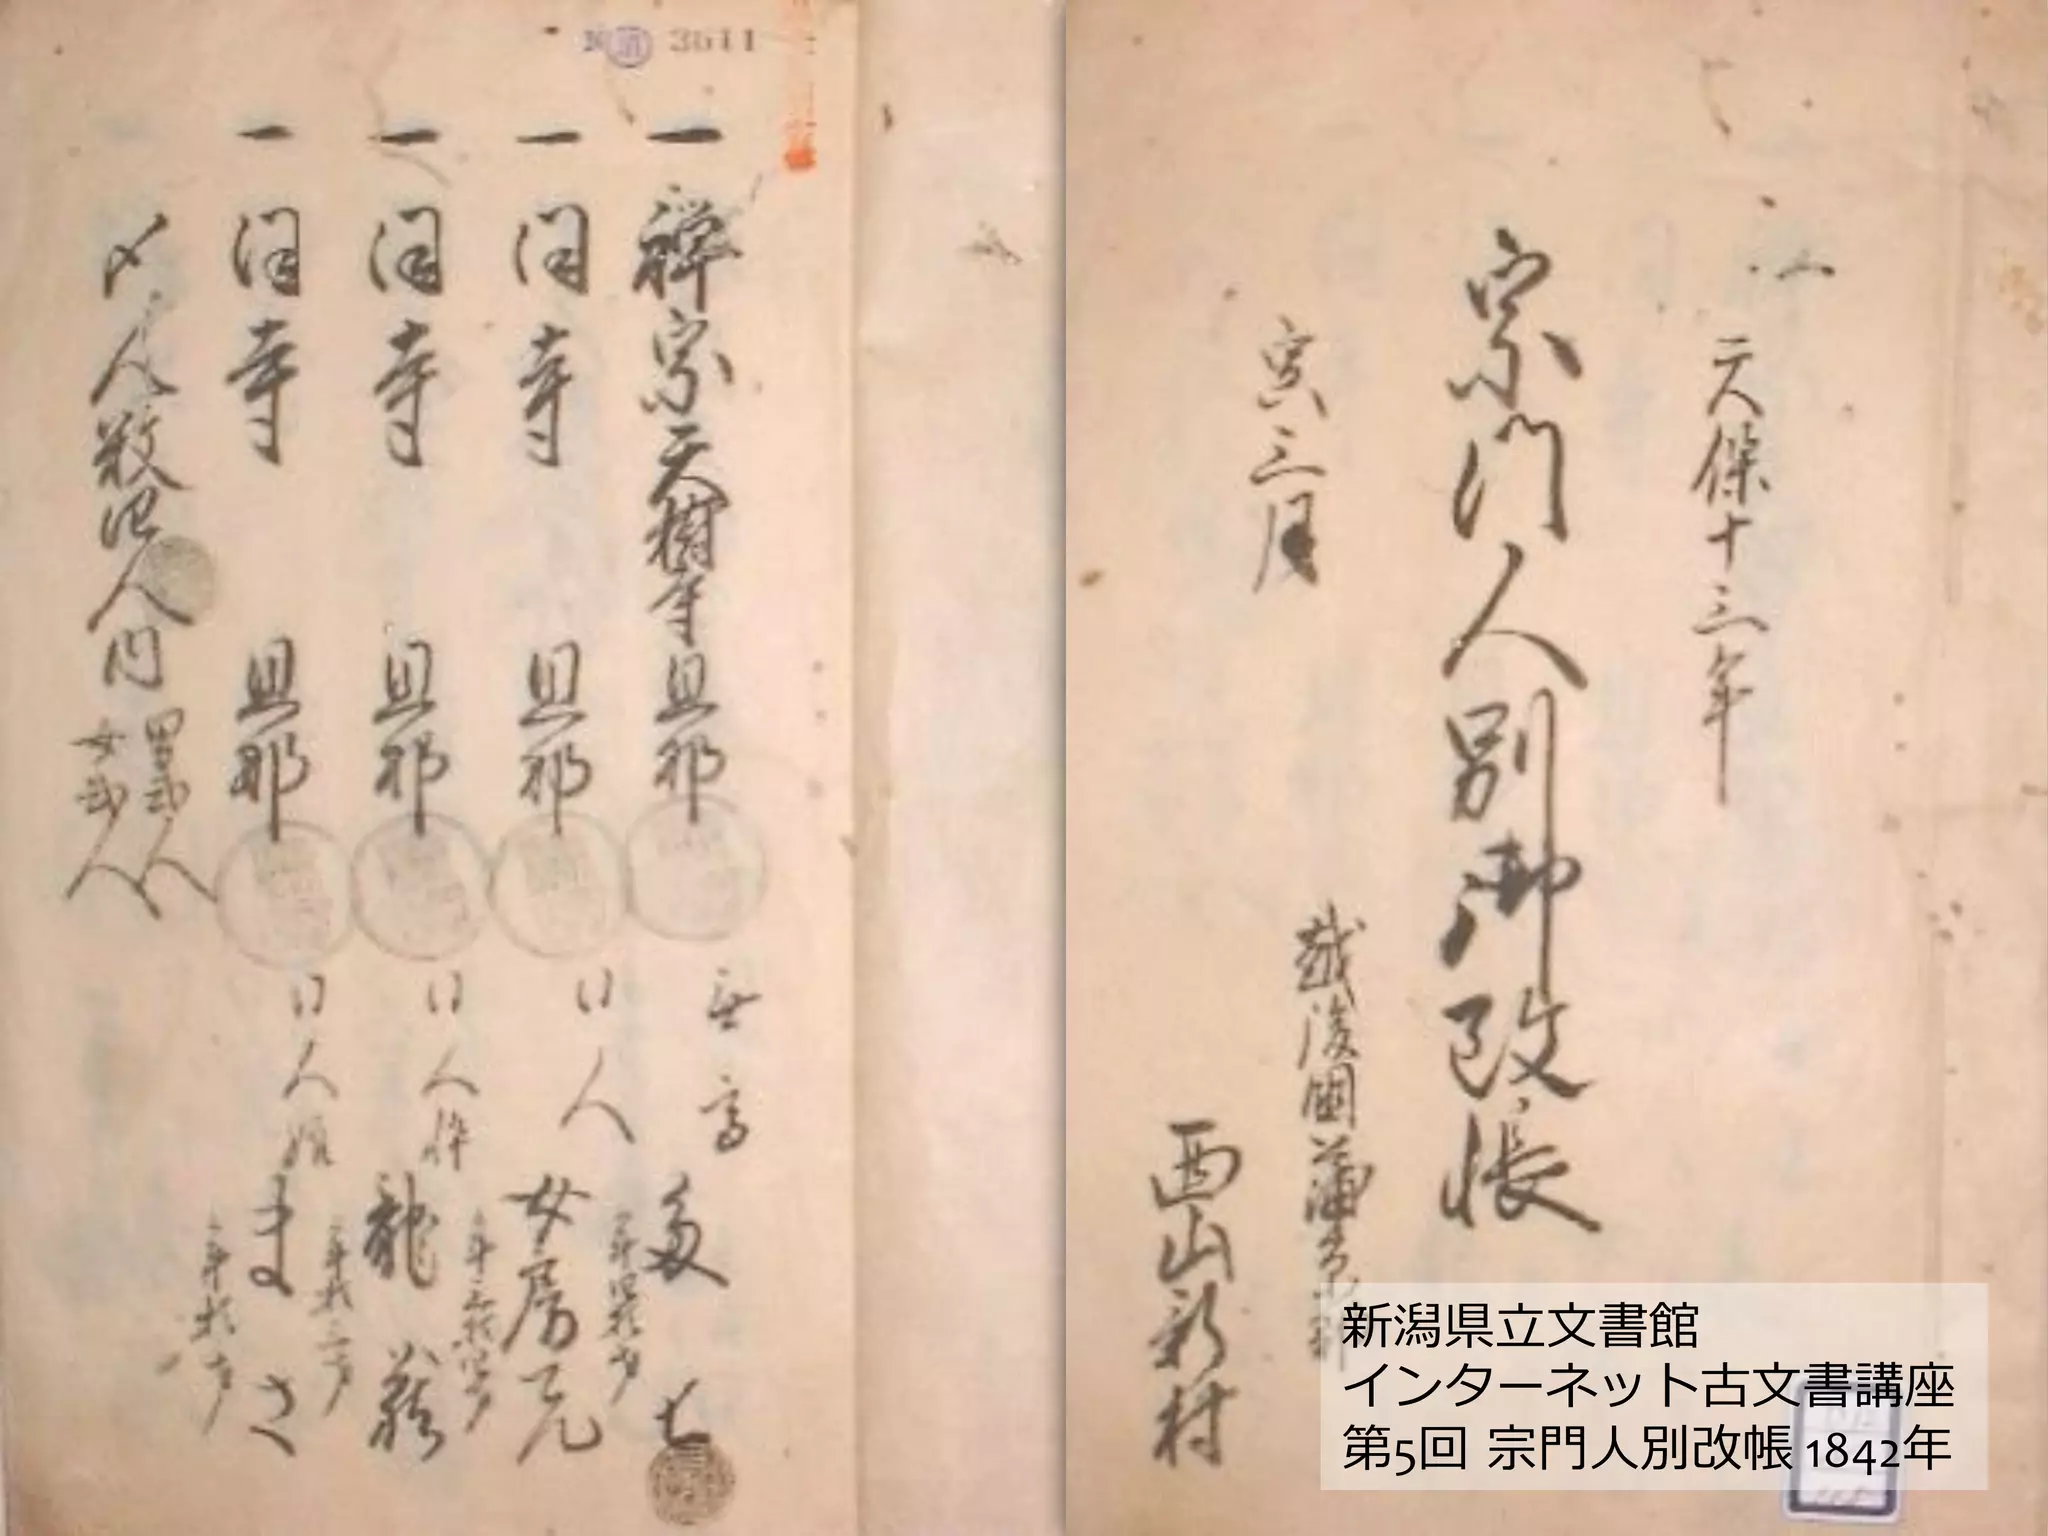 天保十三年
宗門人別御改帳
寅三月
越後国蒲原郡
西山新村
新潟県立文書館
インターネット古文書講座
第5回 宗門人別改帳 1842年
3611
一 禅宗天樹寺旦那 無高 多七
年四拾
一 同寺 旦那 同人 女房
年三拾
一 同寺 旦那 同人忰 龍蔵
年拾三才
一 同寺 旦那 同人娘 まさ
年拾才
〆人数四人内
男弐人
女弐人